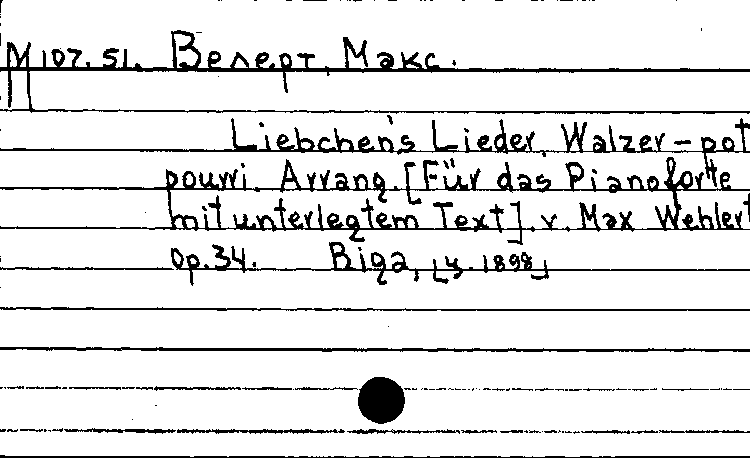 М 107.51. Велерт, Макс.
Liebchen's Lieder. Walzer-pot
pourri. Arrang. [Für das Pianoforte
mit unterlegtem Text]. v. Max Wehlert
Op.34. Riga, [ц. 1898]